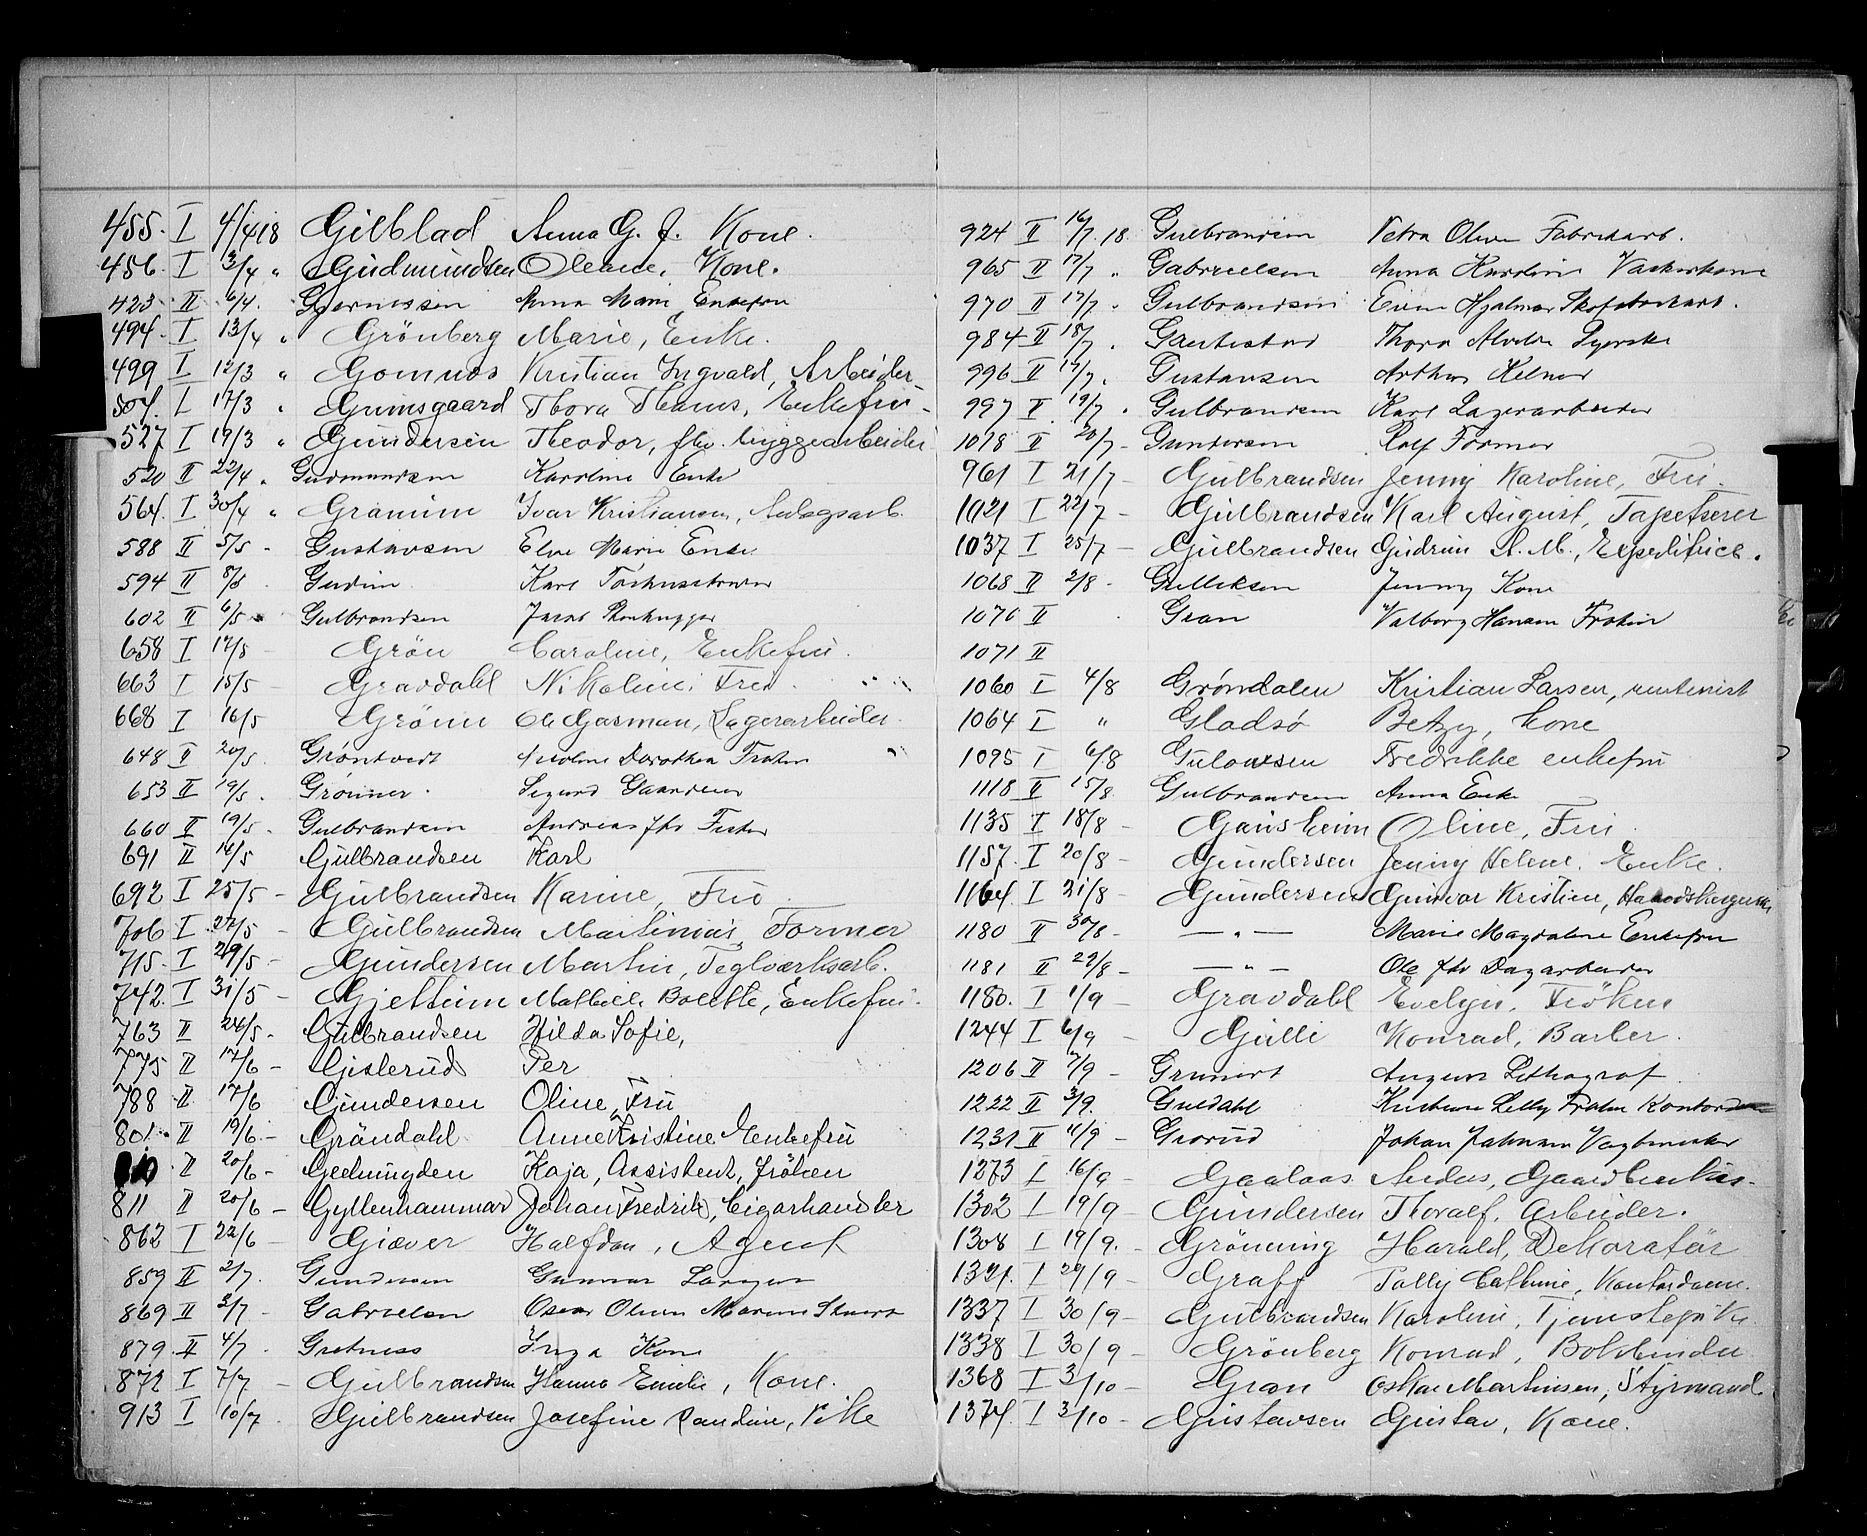 455. I 4/4 18 Gilblad Anna G. J. Kone.
456. I 3/4 " Gudmundsen Oleane, Kone.
423 II 6/4. Anna Marie Enkefru
494. I 13/4 " Grönberg Marie, Enke.
499 I 12/3 " Gomnæs Kristian Ingvald, Arbeider
504. I 17/3 " Grimsgaard Thora Thams, Enkefru
527 I 19/3 " Gundersen Theodor, fhv. byggearbeider
520 II 22/4 " Gudmundsen Karoline Enke
564. I 30/4 " Gramim Ivar Kristiansen, Anlægsarb.
588 II 5/5 - Gustavsen Marie Enke
594 II 8/5 Karl
602 II 6/5 Gulbrandsen Jacob Stenhugger
658 I 17/5 Grön Caroline, Enkefru.
663 I 15/5 Gravdahl Nikoline, Frø.
668 I 16/5 Grönn Ole Gasman, Lagerarbeider.
648 II 20/5. Grøntvedt Nicoline Dorothea Frøken
653 II 19/5. Grönner. Sigurd Gaardeier
660 II 19/5. Gulbrandsen Andreas fhv Fisker
691 II 16/5 Gulbrandsen Karl
692 I 25/5 - Gulbrandsen Karine, Frø.
706 I 27/5 - Gulbrandsen Martinius, Former
715. I 29/5 - Gundersen Martin, Teglværksarb.
742. I 31/5 - Gjeltum Mathilde Bolette, Enkefru.
763 II 26/5. Gulbrandsen Hilda Sofie,
775 II 17/6 - Gislerud Per
788 II 17/6 Gundersen Oline, Fru
801. II 19/6. - Gröndahl. Anne Kristine Enkefru
II 20/6 - Gedmingden Kaja, Assistent, fröken
811 II 20/6 - Gyllenhammar Johan Fredrik, Cigarhandler
862 I 22/6 - Giæver Halfdan, Agent
859 II 2/7. Gundersen Gunnar
869 II 3/7 - Gabrielsen Oscar Olsen
879 II 4/7. Gretness Inga Kone
872 I 7/7 - Gulbrandsen Hanna Emilie, Kone.
913 I 10/7. Gulbrandsen Josefine Randine, Pike
924 II 16/7. 18. Gulbrandsen Petra Olsen Fabrikarb.
965 II 17/7 " Gabrielsen Anna Karoline Vaskerkone
970 II 17/7 " Gulbrandsen Einar Hjalmar Skofabrikarb.
984 II 18/7 " Gautestad Thora Alvilde Syerske
996 II 17/7 " Gustavsen Arthur Kelner
997 II 19/7 " Gulbrandsen Karl Lagerarbeider
1018 II 20/7 - Gundersen Rolf Former
961 I 21/7 - Gulbrandsen Jenny Karoline, Fru.
1021 I 22/7 - Gulbrandsen Karl August, Tapetserer
1037 I 25/7 - Gulbrandsen Gudrun A. M., Expeditrice.
1068 II 2/8 - Gulliksen Jenny Kone
1070 II Gran Valborg Hansen Frøken
1071 II
1060 I 4/8 Grøndalen Kristian Larsen, rentenist
1064 I " Gladsö Betzy, kone
1095 I 6/8 Gulowsen Fredrikke enkefru
1118 II 15/8 Gulbrandsen Anna Enke
1135 I 18/8 - Gausheim Oline, Fru
1157. I 20/8 - Gundersen Jenny Helene. Enke.
1164. I 21/8 - Gundersen Gunvor Kristine,
1180 II 30/8 - — " — Marie Magdalene Enkefru
1181 II 22/8 - — " — Ole fhv Dagarbeider
1180. I 1/9 - Gravdahl Evelyn. Fröken
1244 I 6/9 - Gulli Konrad, Barber.
1206 II 7/9 - Grunert August Lithograf
1222 II 3/9. Guldahl Lilly Frøken
1231 II 4/9 - Grorud Johan Johnsen Vagtmester
1273 I 16/9 - Gaalaas Anders,
1302 I 19/9 - Gundersen Thoralf. Arbeider.
1308 I 19/9. - Grönning Harald, Dekoratör
1321. I 29/9 - Graff Tolly Cathrine, Kontordame.
1337 I 30/9 - Gulbrandsen Karoline, Tjenestepike
1338 I 30/9 - Grönberg Konrad, Bokbinder
1368 I 3/10 - Gran Oskar Martinsen, Styrmand.
1374. I 3/10 - Gustavsen Gustav, Kone.